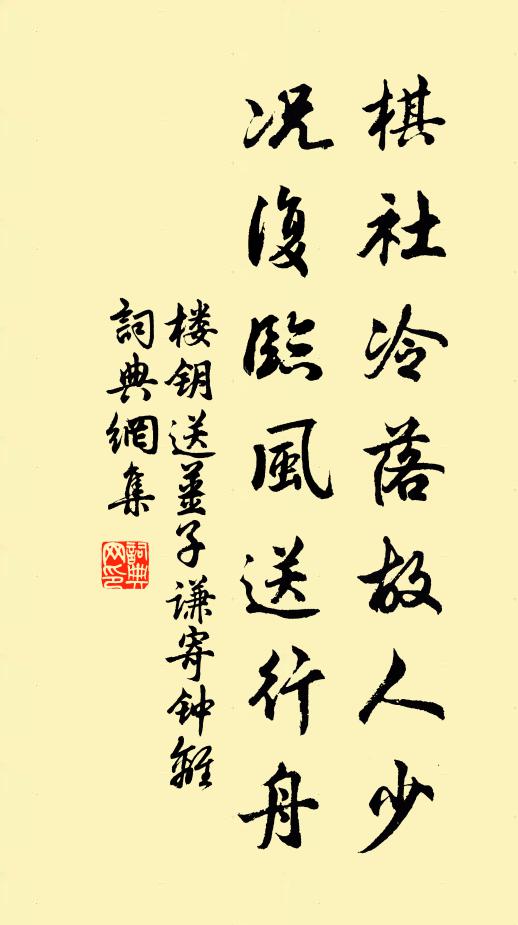 棋社冷落故人少
况復臨風送行舟
楼钥送姜子谦寄钟離
詞典網集
詞典网印